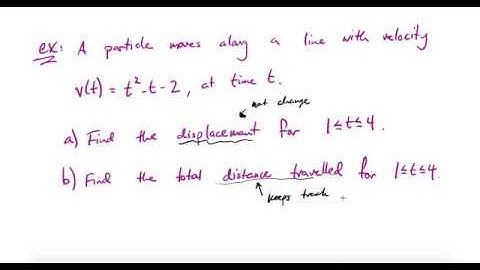 ex: A particle moves along a line with velocity
v(t) = t² - t - 2, at time t.
net change
a) Find the displacement for 1 ≤ t ≤ 4.
b) Find the total distance travelled for 1 ≤ t ≤ 4.
keeps track